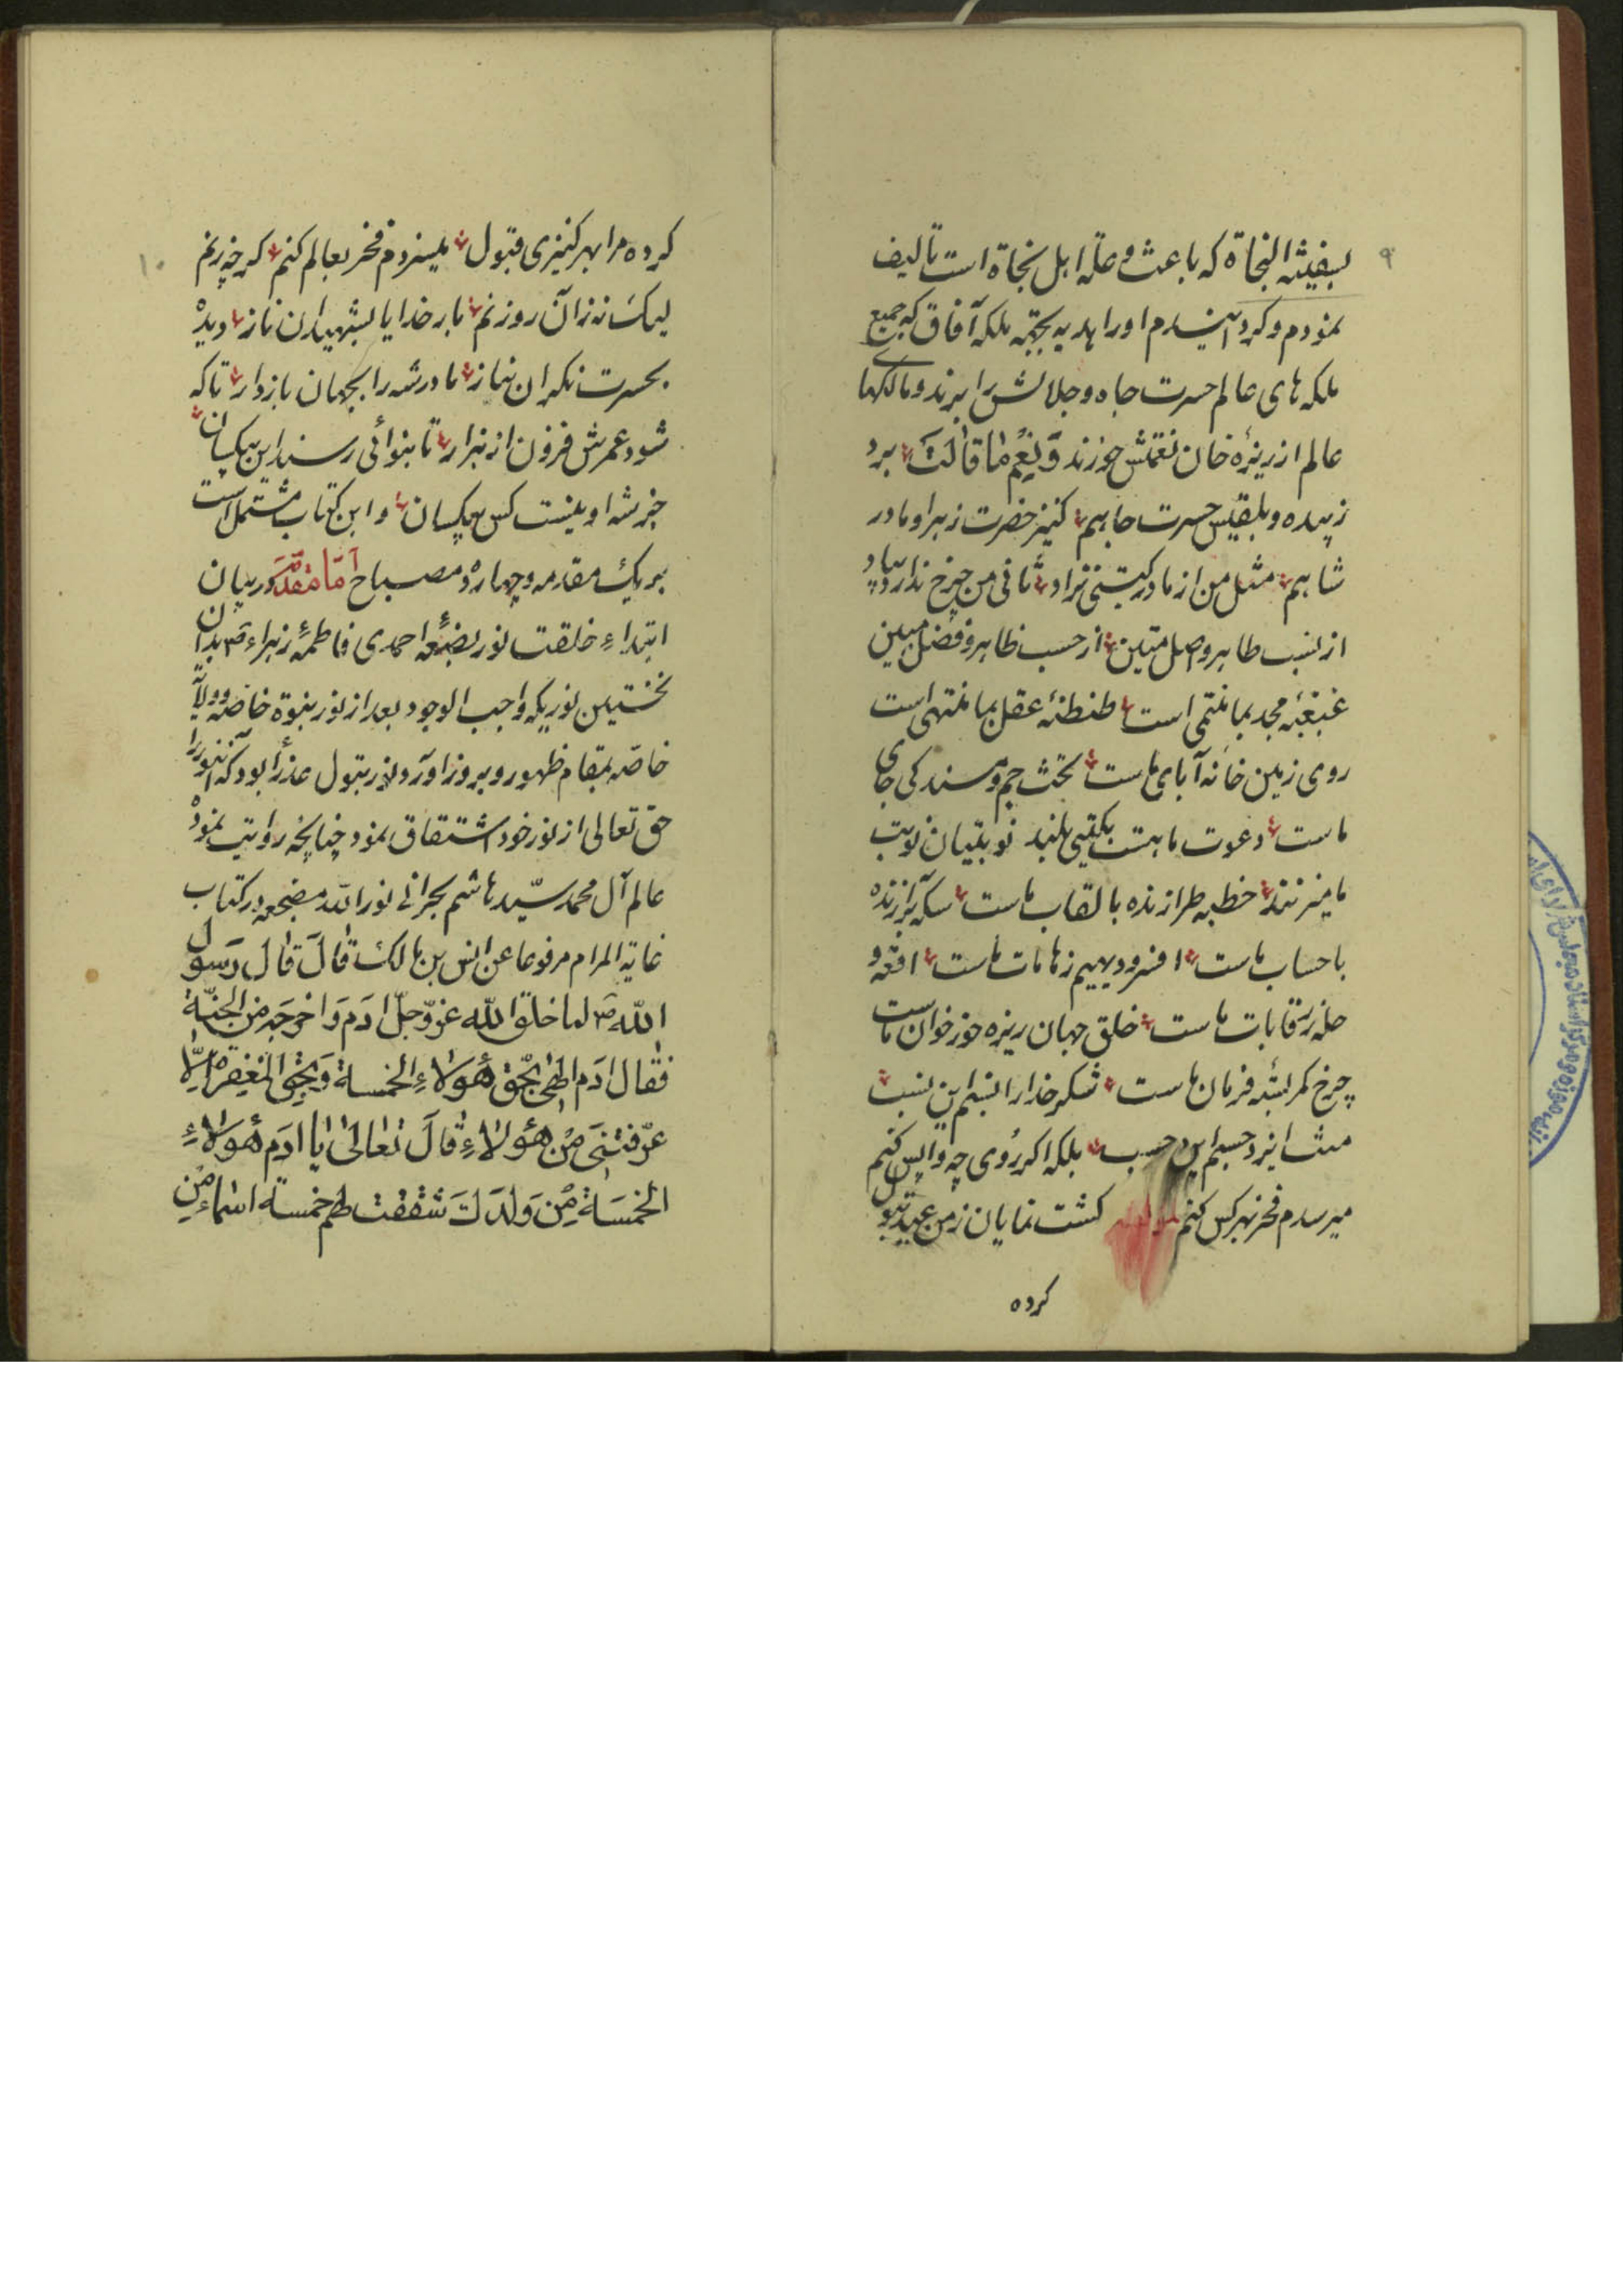 ۹
بسفینة النجاة که باعث و علة اهل نجاة است تالیف
نمودم و کردانیدم او را هدیه بجته ملکه آفاق که جمیع
ملکه های عالم حسرت جاه و جلالش را برند و مالکهای
عالم از ریزه خان نعمتش خورند وَ نِعْمَ ما قالَتْ برد
زبیده و بلقیس حسرت جاهم کنیز حضرت زهرا و مادر
شاهم مثل من از مادر کیتی نزاد ثانی من چرخ ندارد بیاد
از نسب طاهر و اصل متین از حسب ظاهر و فضل مبین
غبغبهٔ مجد بما منتمی است طنطنهٔ عقل بما منتهی است
روی زمین خانه آبای ماست تخت جم و مسند کی جای
ماست دعوت ما هست بکیتی بلند نوبتیان نوبت
ما میزنند خطبه طرازنده بالقاب ماست سکه برازنده
باحساب ماست افسر و دیهیم ز هامات ماست
ماست خلق جهان ریزه خور خوان ماست
چرخ کمر بستهٔ فرمان ماست شکر خدا را نسبم این نسبت
منت ایزد حسبم این حسب بلکه اکر روی چه واپس کنم
میرسدم فخر بهر کس کنم کشت نمایان ز من عهد بتول
کرده
۱۰
کرده مرا بهر کنیزی قبول میسزدم فخر بعالم کنم کر چه زنم
لیک نه زان روزنم بار خدایا بشهیدان ناز دیدهٔ
بحسرت نکران نیاز مادر شه را بجهان بازدار تا که
شود عمرش فزون از هزار تا بنوائی رسند این بیکسان
جز شه او نیست کس بیکسان و این کتاب مشتمل است
بر یک مقدمه و چهارده مصباح اَمّا مُقَدَّمَه در بیان
ابتداء خلقت نور بضعهٔ احمدی فاطمهٔ زهراء ص بدان
نخستین نوریکه واجب الوجود بعد از نور نبوة خاصه و ولایة
خاصه بمقام ظهور و بروز اورد نور بتول عذرا بود که آن نور را
حق تعالی از نور خود اشتقاق نمود چنانچه روایت نموده
عالم آل محمد سیّد هاشم بحرانی نور الله مضجعه در کتاب
غایة المرام مرفوعا عن انس بن مالک قالَ قالَ رَسول
اللّه ص لما خلق اللّه عزّ و جلّ ادَم وَ اخرجه من الجنّة
فقال ادَم الهی بحّق هؤلاءِ الخمسة
عرّفتنی مَن هؤلاءِ قالَ تعالی یا ادَم هؤلاءِ
الخمسَة مِن وَلَدِکَ شققت لهم خمسة اسماء من